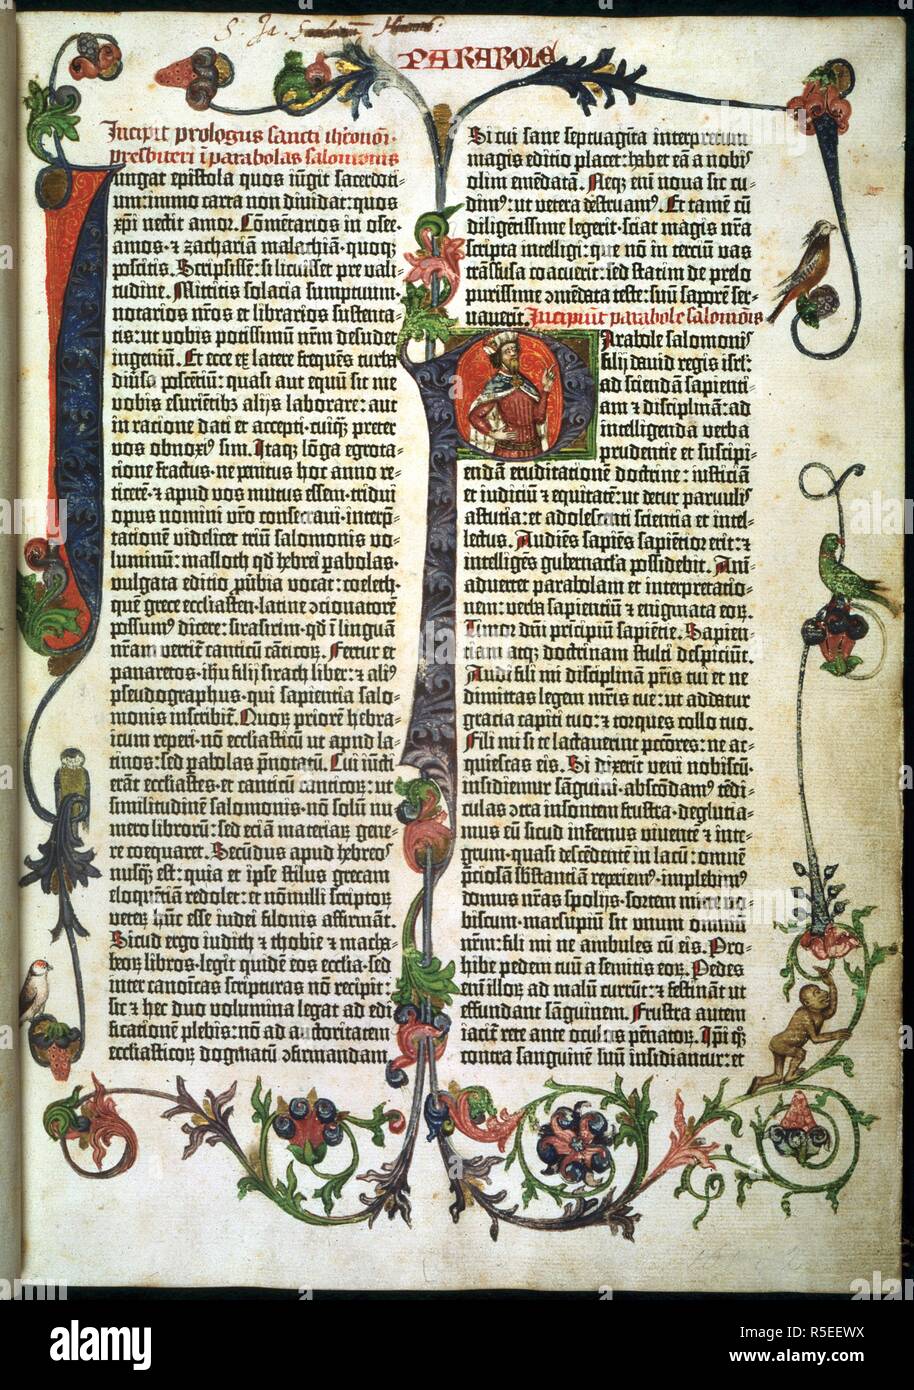 PARABOLE
Incipit prologus sancti iheronimi
presbiteri ī parabolas salomonis
Iungat epistola quos iūgit sacerdoti-
um: immo carta non diuidat: quos
xp̄i nectit amor. Cōmētarios in osee·
amos·⁊ zachariam malachiam·quoqȝ
poscitis. Scripsissē: si licuisset pre vali-
tudine. Mittitis solacia sumptuum·
notarios nr̄os et librarios sustenta-
tis: ut vobis potissimū nr̄m desudet
ingeniū. Et ecce ex latere frequēs turba
diūsa poscētiū: quasi aut equū sit me
vobis esurientibȝ alijs laborare: aut
in ratione dati et accepti·cuiqȝ preter
vos obnoxi⁹ sim. Itaqȝ lōga egrota-
tione fractus·ne penitus hoc anno re-
ticerē·⁊ apud vos mutus essem·tridui
opus nomini vr̄o consecraui·interp̄-
tationē videlicet triū salomonis vo-
luminū: masloth qd̄ hebrei ꝑabolas·
vulgata editio ꝓūbia vocat: coeleth·
quē grece ecclīasten·latine ↄcionatorē
possum⁹ dicere: sirasirim·qd̄ ī linguā
nr̄am vertit canticū cāticoꝝ. Fertur et
panaretos·ihū filij sirach liber: ⁊ ali⁹
pseudographus·qui sapientia salo-
monis inscribit᷑. Quoꝝ priorē hebra-
icum reperi·nō ecclīasticū ut apud la-
tinos: sed ꝑabolas p̄notatū. Cui iūcti
erāt ecclīastes·et canticū canticoꝝ: ut
similitudinē salomonis·nō solū nu-
mero librorū: sed eciā materiaꝝ gene-
re coequaret. Secūdus apud hebreos
nusqȝ est: quia et ipse stilus grecam
eloquētiā redolet: et nōnulli scriptoꝝ
veteꝝ hūc esse iudei filonis affirmāt.
Sicud ergo iudith ⁊ thobie ⁊ macha-
beoꝝ libros·legit quidē eos ecclīa·sed
inter canonicas scripturas nō recipit:
sic ⁊ hec duo volumina legat ad edi-
ficationē plebis: nō ad auctoritatem
ecclīasticoꝝ dogmatū ↄfirmandam.
Si cui sane septuagīta interpretum
magis editio placet: habet eā a nobis
olim emēdatā. Neqȝ eni nova sic cu-
dim⁹: ut vetera destruam⁹. Et tamē cū
diligētissime legerit·sciat magis nr̄a
scripta intelligi: que nō in terciū vas
trāsfusa coacuerīt: sed statim de prelo
purissime ↄmēdata teste: suū saporē ser-
vauerīt. Incipiunt parabole salomonis
Parabole salomonis
filij dauid regis isrl̄:
ad sciendā sapienti-
am ⁊ disciplinā: ad
intelligenda verba
prudentie et suscipi-
endā eruditationē doctrine: iusticiā
et iudiciū ⁊ equitatē: ut detur paruulis
astutia: et adolescenti scientia et intel-
lectus. Audiēs sapiēs sapiētior erit: ⁊
intelligēs gubernacla possidebit. Ani-
aduertet parabolam et interpretatio-
nem: verba sapientiū ⁊ enigmata eoꝝ.
Timor dn̄i principiū sapiētie. Sapien-
tiam atqȝ doctrinam stulti despiciūt.
Audi fili mi disciplinā pr̄is tui et ne
dimittas legem mr̄is tue: ut addatur
gracia capiti tuo: ⁊ torques collo tuo.
Fili mi si te lactauerint pctōres: ne ac-
quiescas eis. Si dixerit veni nobiscū·
insidiemur sāguini·abscōdam⁹ tēdi-
culas ↄtra insontem frustra·deglutia-
mus eū sicud infernus viuentē ⁊ inte-
grum·quasi descēdentē in lacū: omnē
p̄ciosā sb̄stantiā repriem⁹·implebim⁹
domus nr̄as spolijs·sortem mitte no-
biscum·marsupiū sit unum omniū
nr̄m: fili mi ne ambules cū eis. Pro-
hibe pedem tuū a semitis eoꝝ. Pedes
eni illoꝝ ad malū currūt: ⁊ festināt ut
effundant sāguinem. Frustra autem
iacit᷑ rete ante oculos pēnatoꝝ. Ip̄i qȝ
contra sanguinē suū insidiantur: et
alamy
Image ID: R5EEWX
www.alamy.com